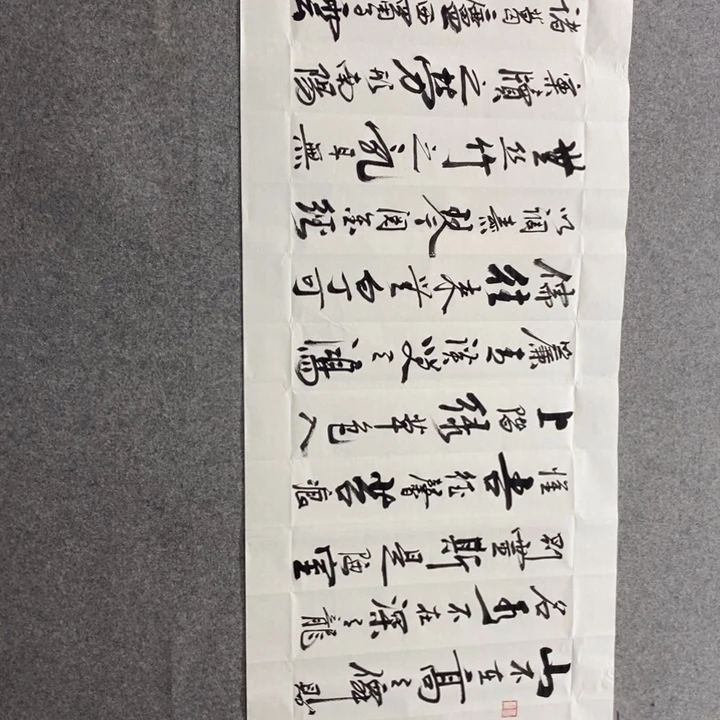 山不在高々僊則
名水不在深々龍
則靈斯是陋室
惟吾德馨苔痕
上階緑草色入
簾青談笑之鴻
儒往來無白丁可
以調素琴々閲金經
無絲竹之亂耳無
案牘之勞形南陽
諸葛之廬西蜀子雲